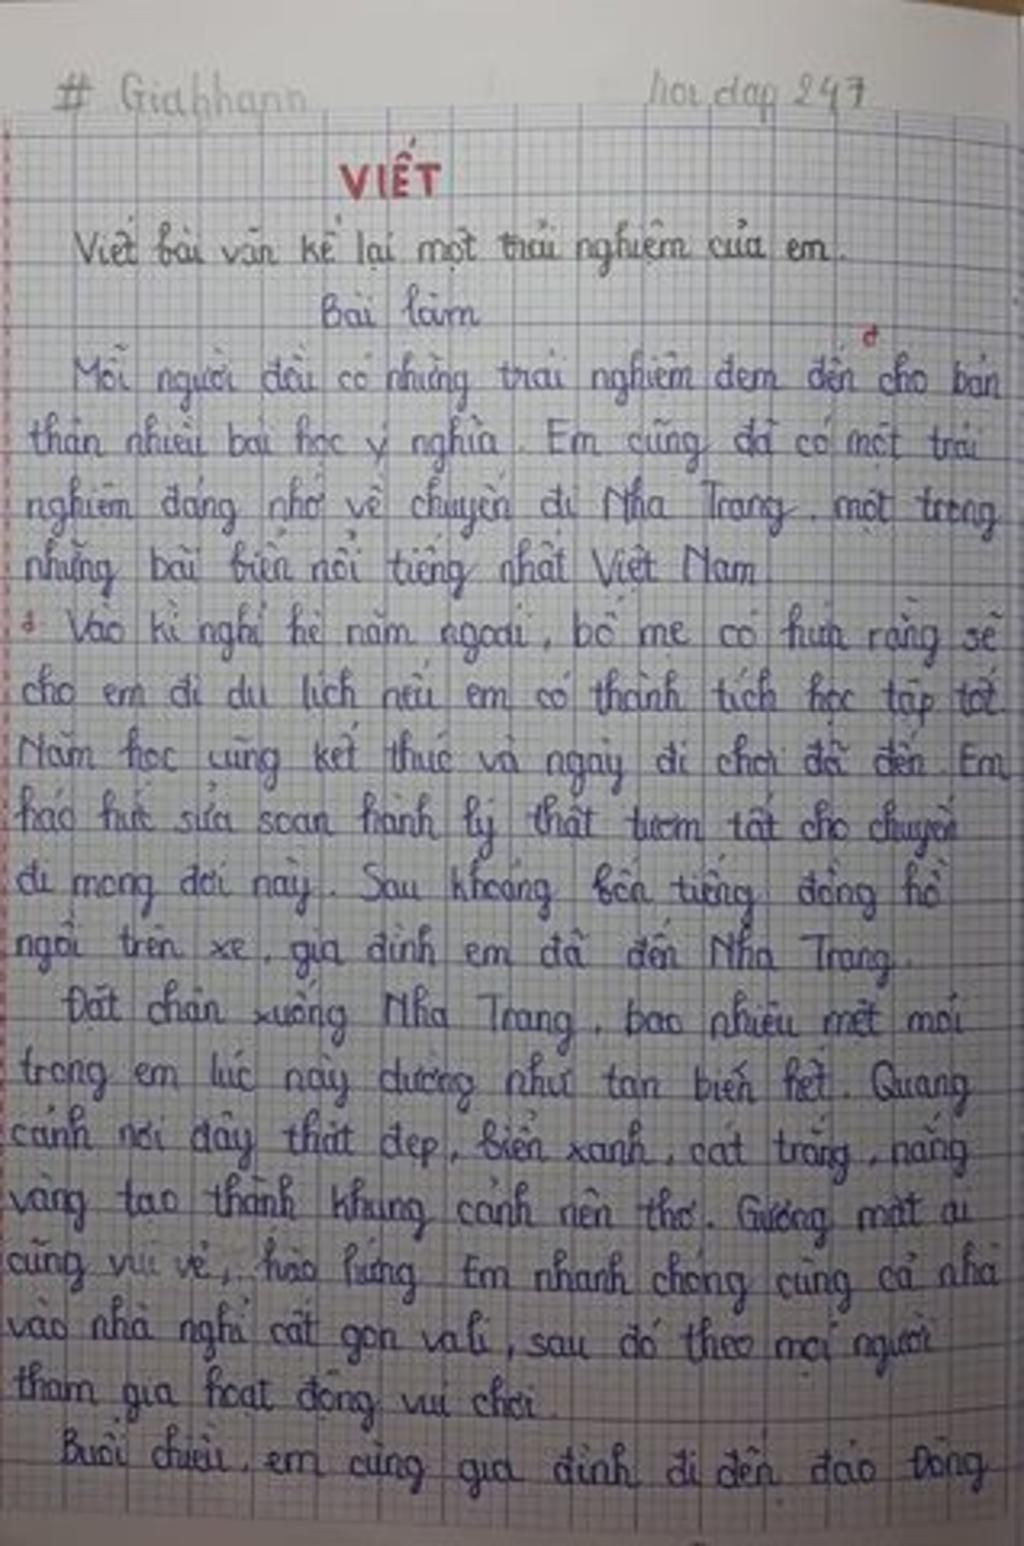 # Giahhann hoi dap 247
VIẾT
Viết bài văn kể lại một trải nghiệm của em.
Bài làm
Mỗi người đều có những trải nghiệm đem đến cho bản
thân nhiều bài học ý nghĩa. Em cũng đã có một trải
nghiệm đáng nhớ về chuyến đi Nha Trang, một trong
những bãi biển nổi tiếng nhất Việt Nam
Vào kì nghỉ hè năm ngoái, bố mẹ có hứa rằng sẽ
cho em đi du lịch nếu em có thành tích học tập tốt.
Năm học cũng kết thúc và ngày đi chơi đã đến. Em
háo hức sửa soạn hành lý thật tươm tất cho chuyến
đi mong đợi này. Sau khoảng bốn tiếng đồng hồ
ngồi trên xe, gia đình em đã đến Nha Trang.
Đặt chân xuống Nha Trang, bao nhiêu mệt mỏi
trong em lúc này dường như tan biến hết. Quang
cảnh nơi đây thật đẹp, biển xanh, cát trắng, nắng
vàng tạo thành khung cảnh nên thơ. Gương mặt ai
cũng vui vẻ, hào hứng Em nhanh chóng cùng cả nhà
vào nhà nghỉ cất gọn vali, sau đó theo mọi người
tham gia hoạt động vui chơi.
Buổi chiều, em cùng gia đình đi đến đảo Đông